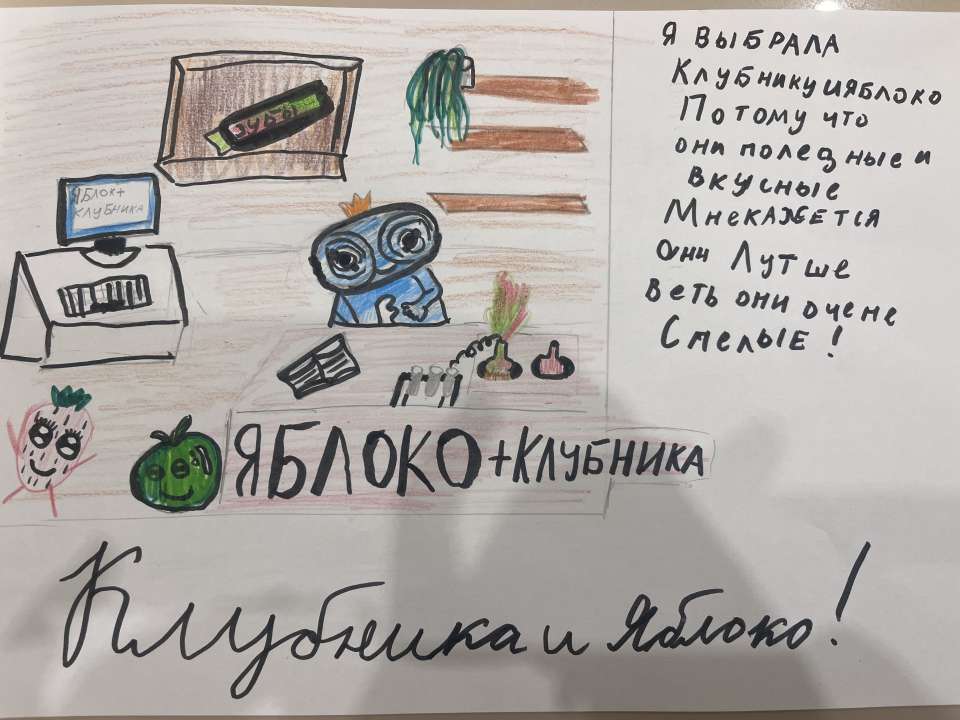 Я ВЫБРАЛА
Клубнику и яблоко
Потому что
они полезные и
вкусные
Мне кажется
они Лутше
веть они очене
Смелые!
ЯБЛОК+
КЛУБНИКА
ЯБЛОКО+КЛУБНИКА
Клубника и Яблоко!